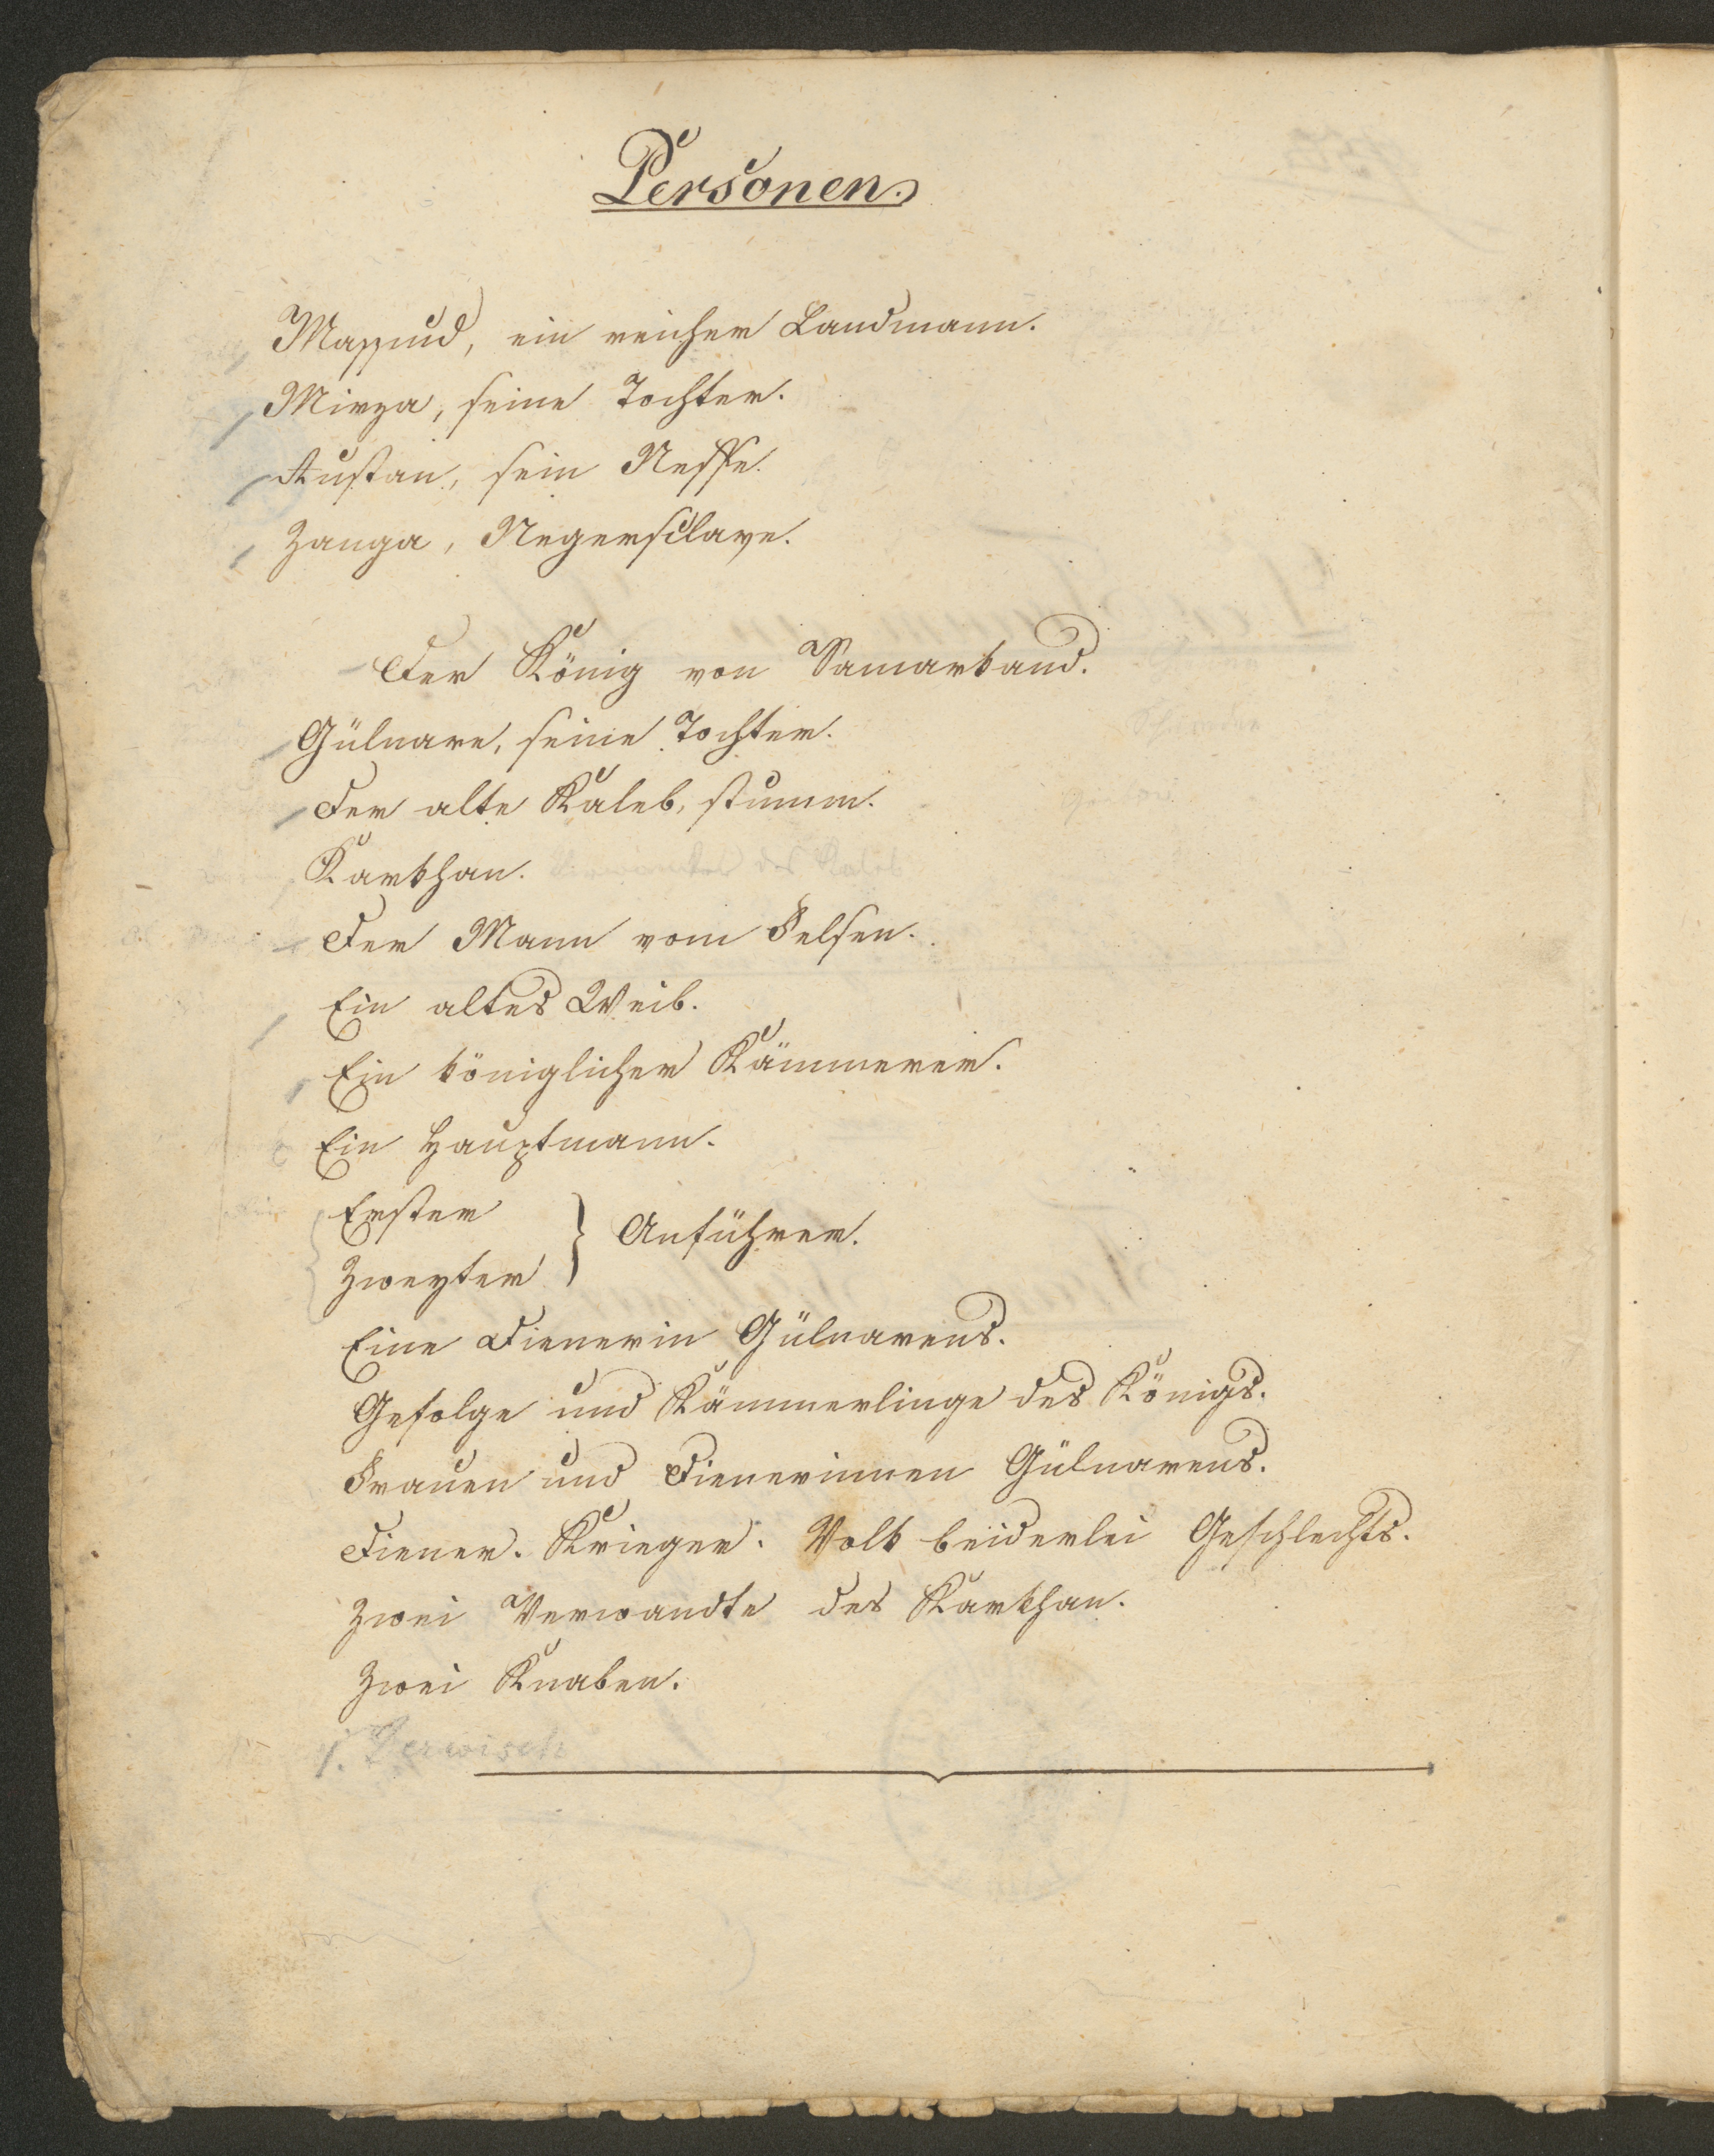 Personen.
Massud, ein reicher Landmann.
Mirza, seine Tochter.
Rustan, sein Neffe.
Zanga, Negersclave.
Der König von Samarkand.
Gülnare, seine Tochter.
Der alte Kaleb, stumm.
Karkhan. Verwandter des Kaleb
Der Mann vom Felsen.
Ein altes Weib.
Ein königlicher Kämmerer.
Ein Hauptmann.
Erster
Zweyter } Anführer.
Eine Dienerin Gülnarens.
Gefolge und Kämmerlinge des Königs.
Frauen und Dienerinnen Gülnarens.
Diener. Krieger. Volk beiderlei Geschlechts.
Zwei Verwandte des Karkhan.
Zwei Knaben.
1. Derwisch